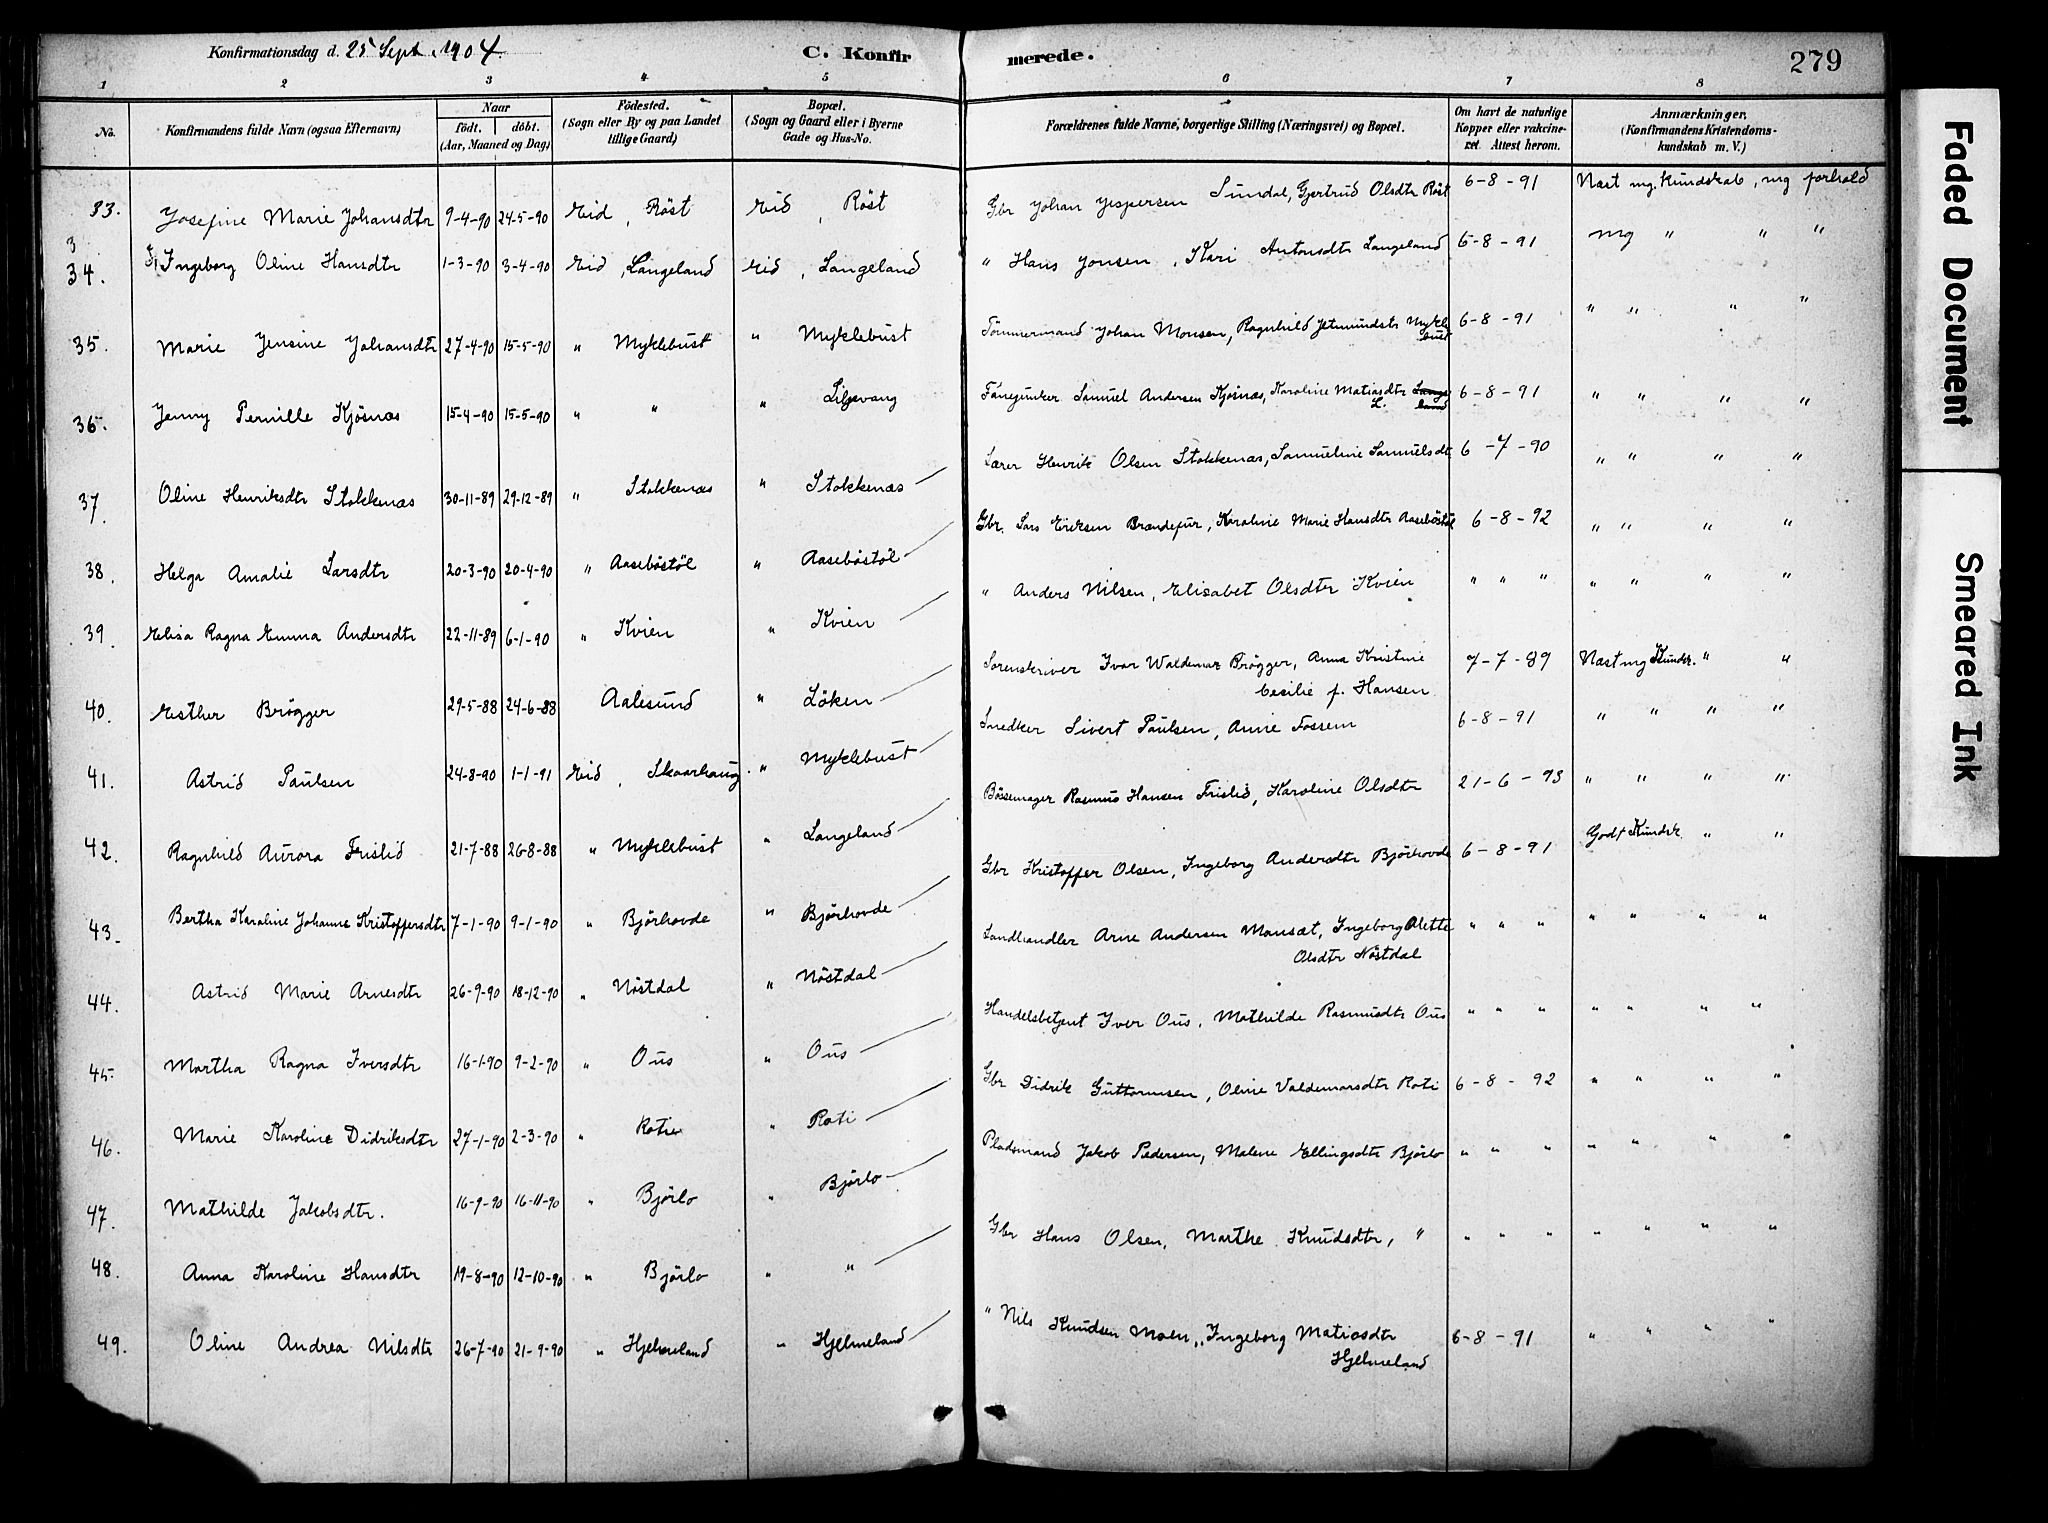 Konfirmationsdag d. 25 Sept. 1904.
C. Konfirmerede.
279
1 2 3 4 5 6 7 8
No.
Konfirmandens fulde Navn (ogsaa Efternavn)
Naar
födt. döbt.
(Aar, Maaned og Dag)
Födested.
(Sogn eller By og paa Landet
tillige Gaard)
Bopæl.
(Sogn og Gaard eller i Byerne
Gade og Hus-No.
Forældrenes fulde Navne, borgerlige Stilling (Næringsvei) og Bopæl.
Om havt de naturlige
Kopper eller vakcine-
ret. Attest herom.
Anmærkninger.
(Konfirmandens Kristendoms-
kundskab m. V.)
33. Josefine Marie Johansdtr 9-4-90 24-5-90 Eid, Röst Eid, Röst Gbr Johan Jespersen Sundal, Gjertrud Olsdtr Röst 6-8-91 Næst mg. kundskab, mg forhold
34. Ingeborg Oline Hansdtr 1-3-90 3-4-90 Eid, Langeland Eid, Langeland " Hans Jonsen, Kari Antonsdtr Langeland 6-8-91 mg " " "
35. Marie Jensine Johansdtr 27-4-90 15-5-90 " Myklebust " Myklebust Tömmermand Johan Monsen, Ragnhild Jetmundsdtr Myklebust 6-8-91 " " " "
36. Jenny Pernille Kjösnæs 15-4-90 15-5-90 " " " Liljevang Fanejunker Samuel Andersen Kjösnæs, Karoline Matiasdtr L. 6-8-91 " " " "
37. Oline Henriksdtr Stokkenæs 30-11-89 29-12-89 " Stokkenæs " Stokkenæs Lærer Henrik Olsen Stokkenæs, Samueline Samuelsdt 6-7-90 " " " "
38. Helga Amalie Larsdtr 20-3-90 20-4-90 " Aaseböstöl " Aaseböstöl Gbr. Lars Eriksen Brandefur, Karoline Marie Hansdtr Aaseböstöl 6-8-92 " " " "
39. Elisa Ragna Emma Andersdtr 22-11-89 6-1-90 " Kvien " Kvien " Anders Nilsen, Elisabet Olsdtr Kvien " " " " " " "
40. Esther Brögger 29-5-88 24-6-88 Aalesund " Löken Sorenskriver Ivar Waldemar Brögger, Anna Kristine
Cecilie f. Hansen 7-7-89 Næst mg Kundsk. " "
41. Astrid Paulsen 24-8-90 1-1-91 Eid, Skaarhaug " Myklebust Snedker Sivert Paulsen, Anne Fossem 6-8-91 " " " "
42. Ragnhild Aurora Frislid 21-7-88 26-8-88 " Myklebust " Langeland Bössemager Rasmus Hansen Frislid, Karoline Olsdtr 21-6-93 " " " "
43. Bertha Karoline Johanne Kristoffersdtr 7-1-90 9-1-90 " Björhovde " Björhovde Gbr Kristoffer Olsen, Ingeborg Andersdtr Björhovde 6-8-91 Godt Kundsk. " "
44. Astrid Marie Arnesdtr 26-9-90 18-12-90 " Nöstdal " Nöstdal Landhandler Arne Andersen Monsæt, Ingeborg Alette
Olsdtr Nöstdal " " " " " " "
45. Martha Ragna Iversdtr 16-1-90 9-2-90 " Ous " Ous Handelsbetjent Iver Ous, Mathilde Rasmusdtr Ous " " " " " " "
46. Marie Karoline Didriksdtr 27-1-90 2-3-90 " Roti " Roti Gbr Didrik Guttormsen, Oline Valdemarsdtr Roti 6-8-92 " " " "
47. Mathilde Jakobsdtr. 16-9-90 16-11-90 " Björlo " Björlo Pladsmand Jakob Pedersen, Malene Ellingsdtr Björlo " " " " " " "
48. Anna Karoline Hansdtr 19-8-90 12-10-90 " Björlo " " Gbr Hans Olsen, Marthe Knudsdtr, " " " " " " " "
49. Oline Andrea Nilsdtr 26-7-90 21-9-90 " Hjelmeland " Hjelmeland " Nils Knudsen Moen, Ingeborg Matiasdtr
Hjelmeland 6-8-91 " " " "
Faded Document
Smeared Ink